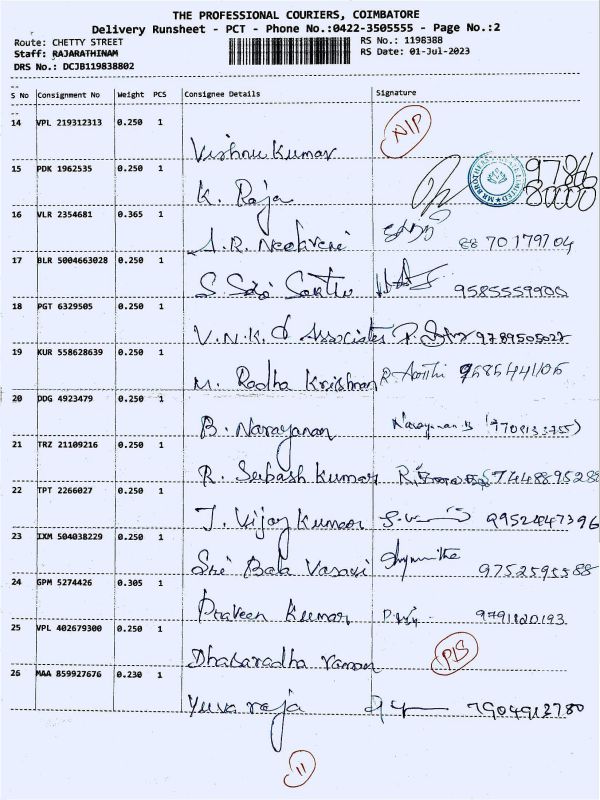 THE PROFESSIONAL COURIERS, COIMBATORE
Delivery Runsheet - PCT - Phone No.:0422-3505555 - Page No.:2
Route: CHETTY STREET RS No.: 1198388
Staff: RAJARATHINAM RS Date: 01-Jul-2023
DRS No.: DCJB119838802
S No Consignment No Weight PCS Consignee Details Signature
14 VPL 219312313 0.250 1 Vishnu Kumar NIP
15 PDK 1962535 0.250 1 K. Raja
16 VLR 2354681 0.365 1 88 70 179704
17 BLR 5004663028 0.250 1 9585559900
18 PGT 6329505 0.250 1 V.N.K. & Associates
19 KUR 558628639 0.250 1 M. Radha Krishnan
20 DDG 4923479 0.250 1 B. Narayanan Narayanan B
21 TRZ 21109216 0.250 1 R. Subash Kumar
22 TPT 2266027 0.250 1 T. Vijay Kumar
23 IXM 504038229 0.250 1 Sri Bala Vasavi 9752595588
24 GPM 5274426 0.305 1 Praveen Kumar
25 VPL 402679300 0.250 1 Dhasaradha raman
26 MAA 859927676 0.230 1 Yuva raja 7904912780
11